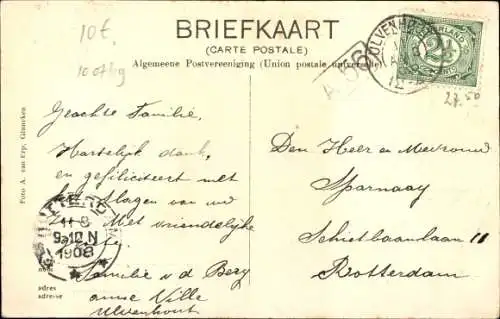 10€
BRIEFKAART
(CARTE POSTALE)
Algemeene Postvereeniging (Union postale universelle)
ULVENHO
NEDERLAND
2½
CENT
27.50
Foto A. van Erp, Ginneken
Geachte Familie,
Hartelijk dank,
en gefiliciteert met
het slagen van uw
Met vriendelijke
Familie v d Berg
anne Ville
Ulvenhout
11 8
9-10.N
1908
adres
adresse
Den Heer en Mevrouw
Sparnaay
Schietbaanlaan 11
Rotterdam